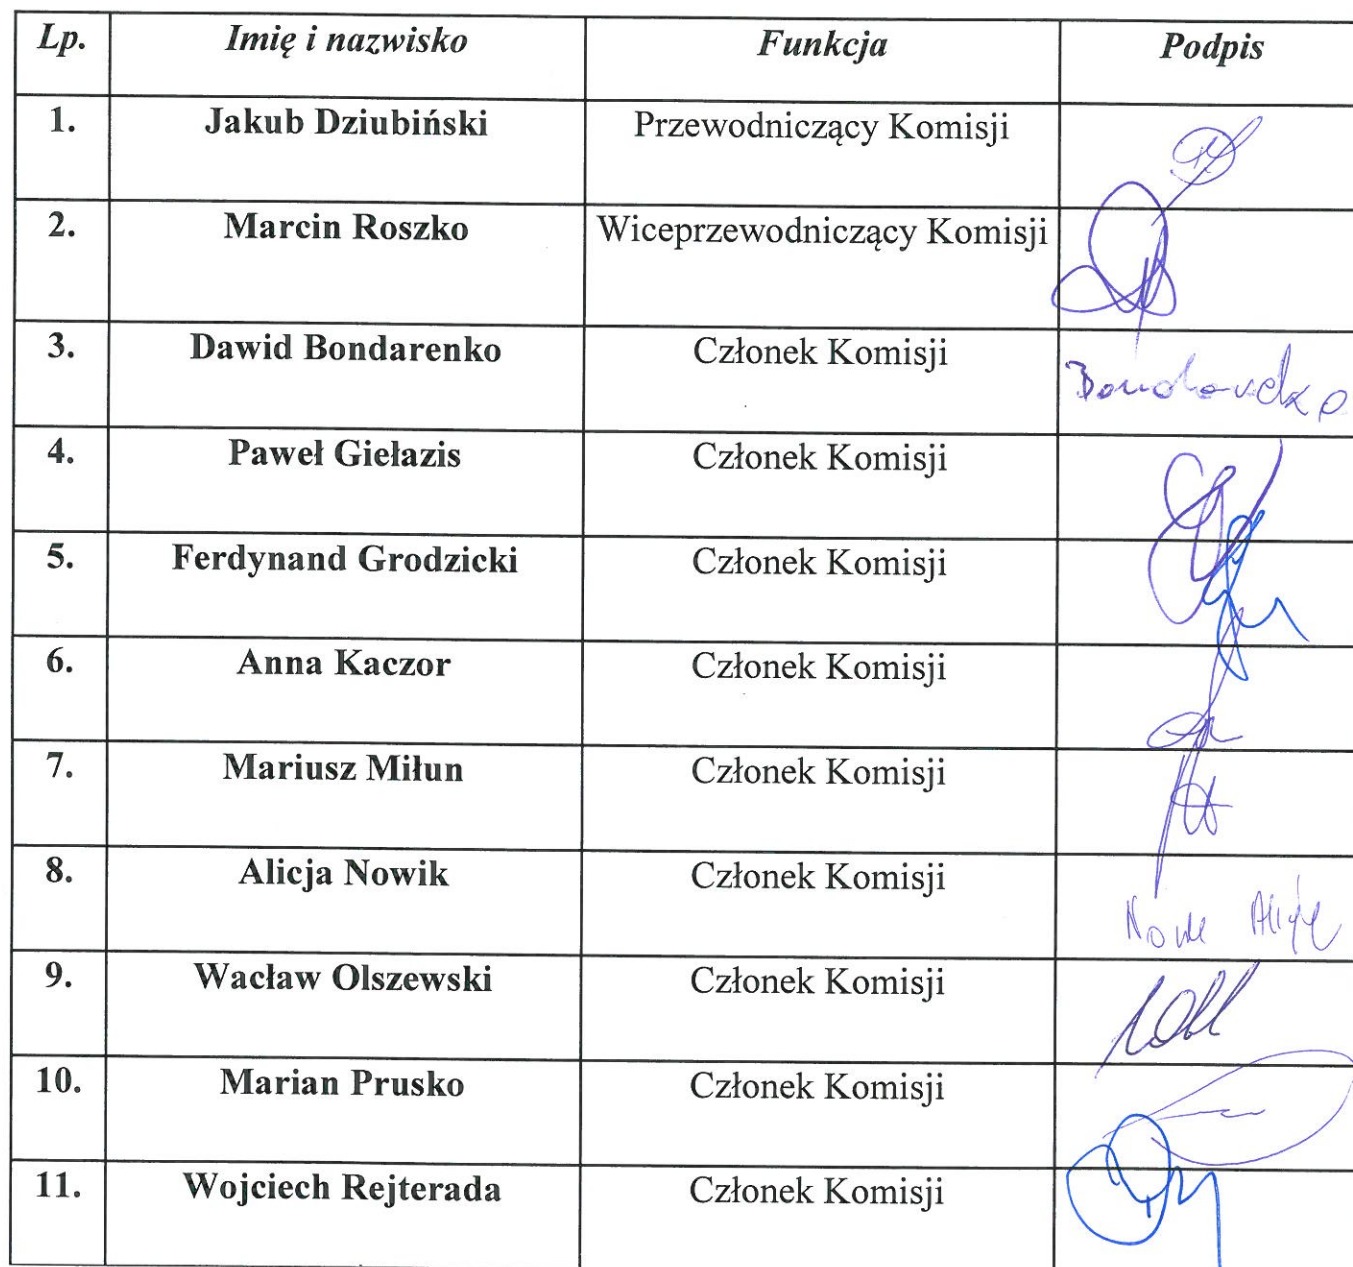 Lp. Imię i nazwisko Funkcja Podpis
1. Jakub Dziubiński Przewodniczący Komisji
2. Marcin Roszko Wiceprzewodniczący Komisji
3. Dawid Bondarenko Członek Komisji Bondarenko
4. Paweł Giełazis Członek Komisji
5. Ferdynand Grodzicki Członek Komisji
6. Anna Kaczor Członek Komisji
7. Mariusz Miłun Członek Komisji
8. Alicja Nowik Członek Komisji
9. Wacław Olszewski Członek Komisji
10. Marian Prusko Członek Komisji
11. Wojciech Rejterada Członek Komisji